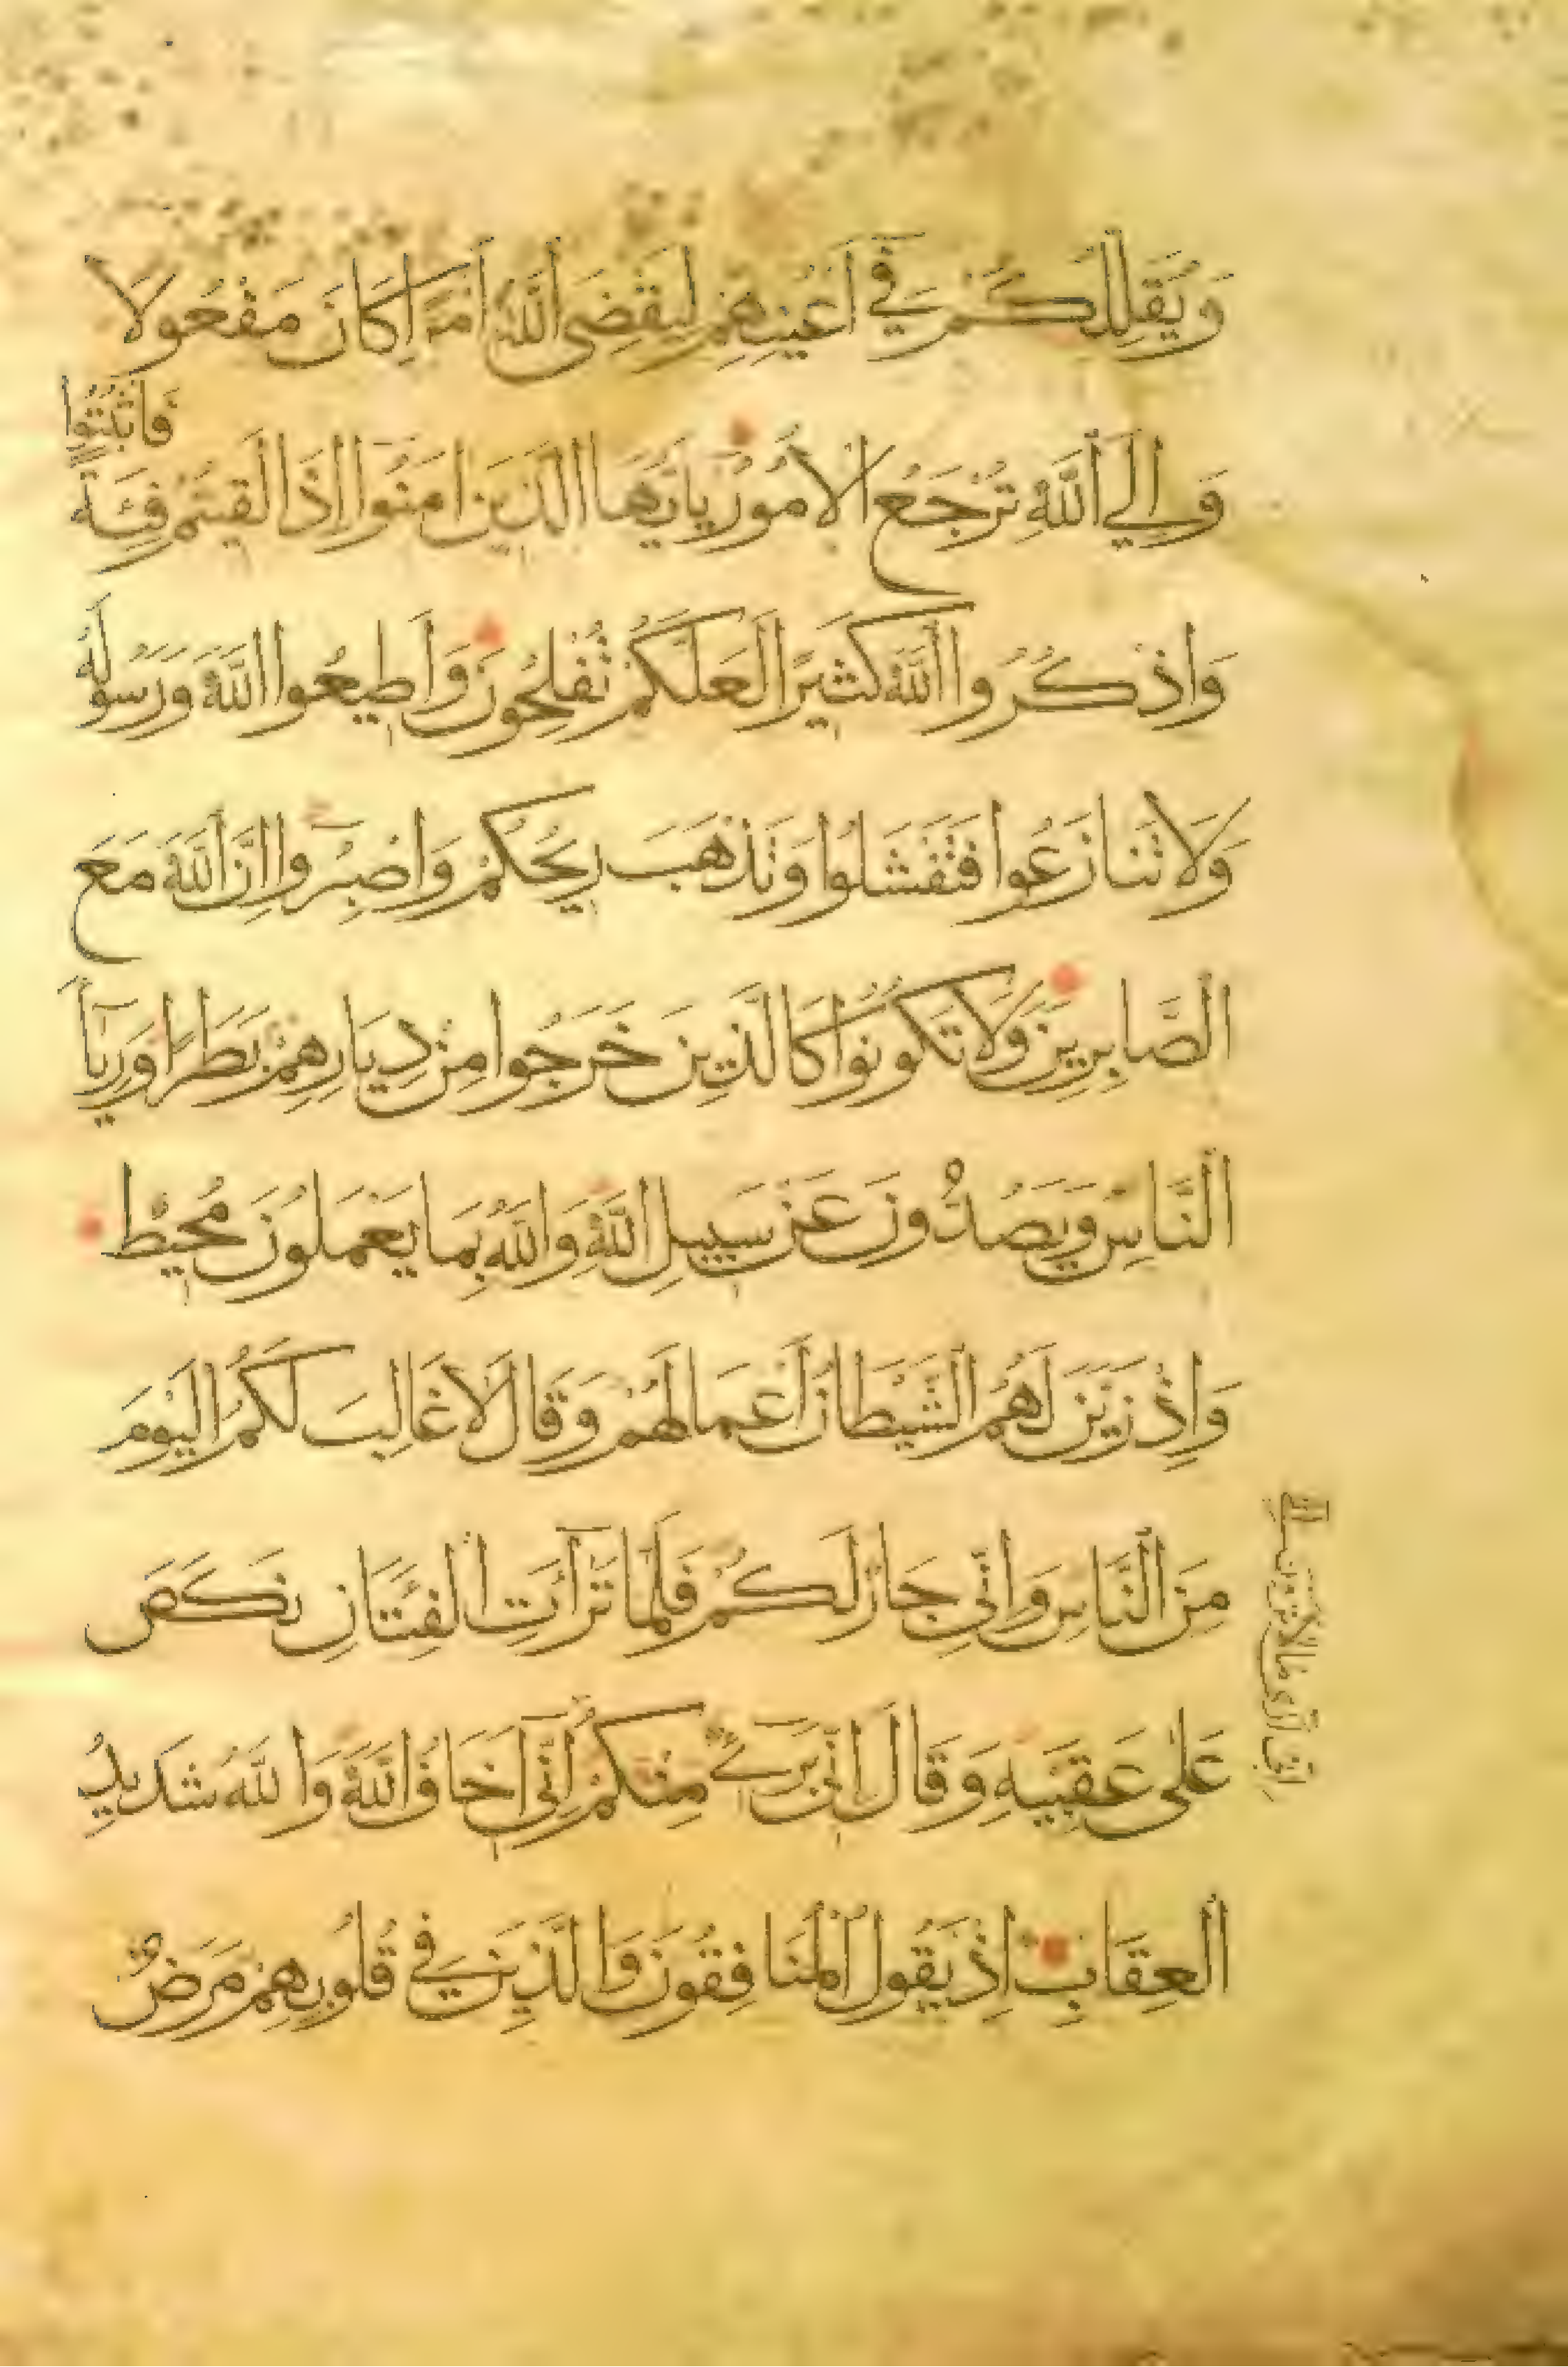 وَيُقَلِّلُكُمْ فِي أَعْيُنِهِمْ لِيَقْضِيَ اللَّهُ أَمْرًا كَانَ مَفْعُولًا
فَاثْبُتُوا
وَإِلَى اللَّهِ تُرْجَعُ الْأُمُورُ يَاأَيُّهَا الَّذِينَ آمَنُوا إِذَا لَقِيتُمْ فِئَةً
وَاذْكُرُوا اللَّهَ كَثِيرًا لَعَلَّكُمْ تُفْلِحُونَ وَأَطِيعُوا اللَّهَ وَرَسُولَهُ
وَلَا تَنَازَعُوا فَتَفْشَلُوا وَتَذْهَبَ رِيحُكُمْ وَاصْبِرُوا إِنَّ اللَّهَ مَعَ
الصَّابِرِينَ وَلَا تَكُونُوا كَالَّذِينَ خَرَجُوا مِنْ دِيَارِهِمْ بَطَرًا وَرِيَاءً
النَّاسِ وَيَصُدُّونَ عَنْ سَبِيلِ اللَّهِ وَاللَّهُ بِمَا يَعْمَلُونَ مُحِيطٌ
وَإِذْ زَيَّنَ لَهُمُ الشَّيْطَانُ أَعْمَالَهُمْ وَقَالَ لَا غَالِبَ لَكُمُ الْيَوْمَ
مِنَ النَّاسِ وَإِنِّي جَارٌ لَكُمْ فَلَمَّا تَرَآءَتِ الْفِئَتَانِ نَكَصَ
عَلَى عَقِبَيْهِ وَقَالَ إِنِّي بَرِيءٌ مِنْكُمْ إِنِّي أَخَافُ اللَّهَ وَاللَّهُ شَدِيدُ
إِنِّي أَرَى مَا لَا تَرَوْنَ
الْعِقَابِ إِذْ يَقُولُ الْمُنَافِقُونَ وَالَّذِينَ فِي قُلُوبِهِمْ مَرَضٌ